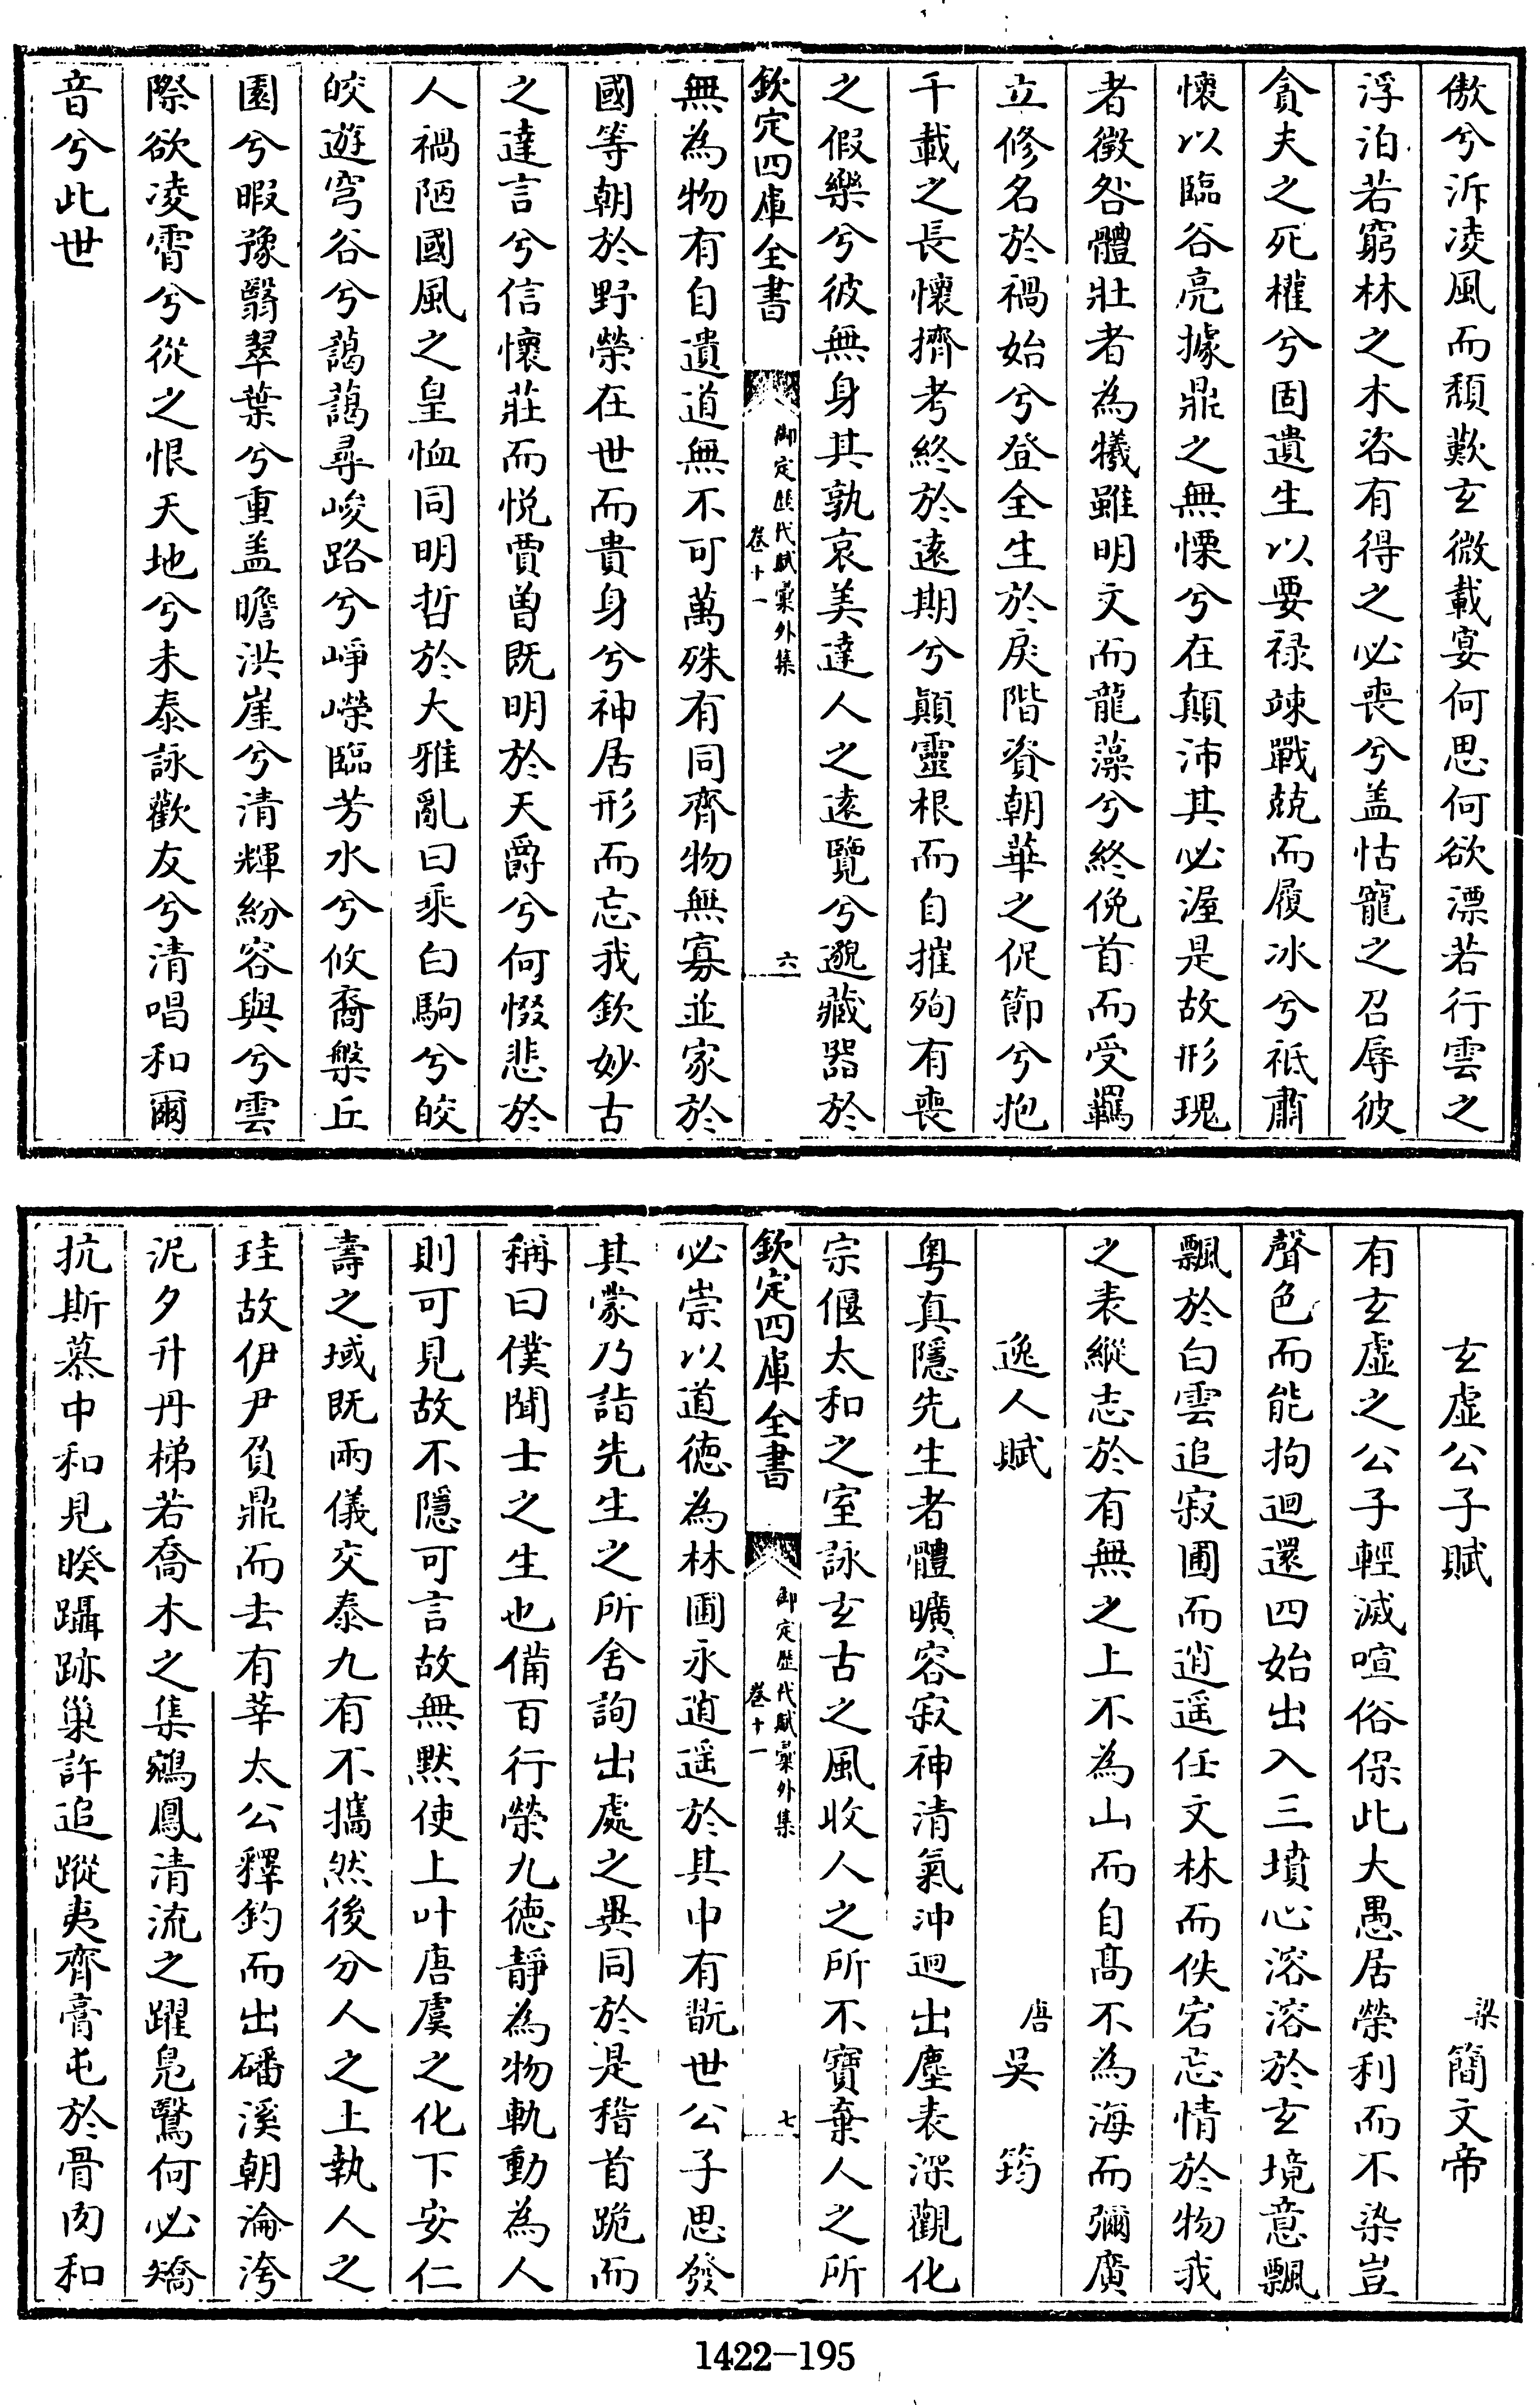 傲兮泝凌風而頽歎玄微載宴何思何欲漂若行雲之
浮泊若窮林之木咨有得之必喪兮盖怙寵之召辱彼
貪夫之死權兮固遺生以要禄竦戰兢而履冰兮祗肅
懷以臨谷亮據鼎之無慄兮在顛沛其必渥是故形瑰
者徵咎體壯者為犧雖明文而龍藻兮終俛首而受羈
立修名於禍始兮登全生於戾階資朝華之促節兮抱
千載之長懷擠考終於遠期兮顛靈根而自摧殉有喪
之假樂兮彼無身其孰哀美達人之遠覽兮邈藏器於
欽定四庫全書
御定歴代賦彙外集
卷十一
六
無為物有自遺道無不可萬殊有同齊物無寡並家於
國等朝於野榮在世而貴身兮神居形而忘我欽妙古
之達言兮信懷莊而悦賈曾既明於天爵兮何惙悲於
人禍陋國風之皇恤同明哲於大雅亂曰乘白駒兮皎
皎遊穹谷兮藹藹尋峻路兮崢嶸臨芳水兮攸裔槃丘
園兮暇豫翳翠葉兮重盖瞻洪崖兮清輝紛容與兮雲
際欲凌霄兮從之恨天地兮未泰詠歡友兮清唱和爾
音兮此世
玄虚公子賦 梁簡文帝
有玄虚之公子輕滅喧俗保此大愚居榮利而不染豈
聲色而能拘迴還四始出入三墳心溶溶於玄境意飄
飄於白雲追寂圃而逍遥任文林而佚宕忘情於物我
之表縱志於有無之上不為山而自髙不為海而彌廣
逸人賦 唐吳筠
粤真隱先生者體曠容寂神清氣沖迥出塵表深觀化
宗偃太和之室詠玄古之風收人之所不寶棄人之所
欽定四庫全書
御定歴代賦彙外集
卷十一
七
必崇以道德為林圃永逍遥於其中有翫世公子思發
其蒙乃詣先生之所舍詢出處之異同於是稽首跪而
稱曰僕聞士之生也備百行榮九德靜為物軌動為人
則可見故不隱可言故無黙使上叶唐虞之化下安仁
壽之域既兩儀交泰九有不攜然後分人之土執人之
珪故伊尹負鼎而去有莘太公釋釣而出磻溪朝淪洿
泥夕升丹梯若喬木之集鵷鳳清流之躍鳧鷖何必矯
抗斯慕中和見暌躡跡巢許追蹤夷齊膏屯於骨肉和
1422-195